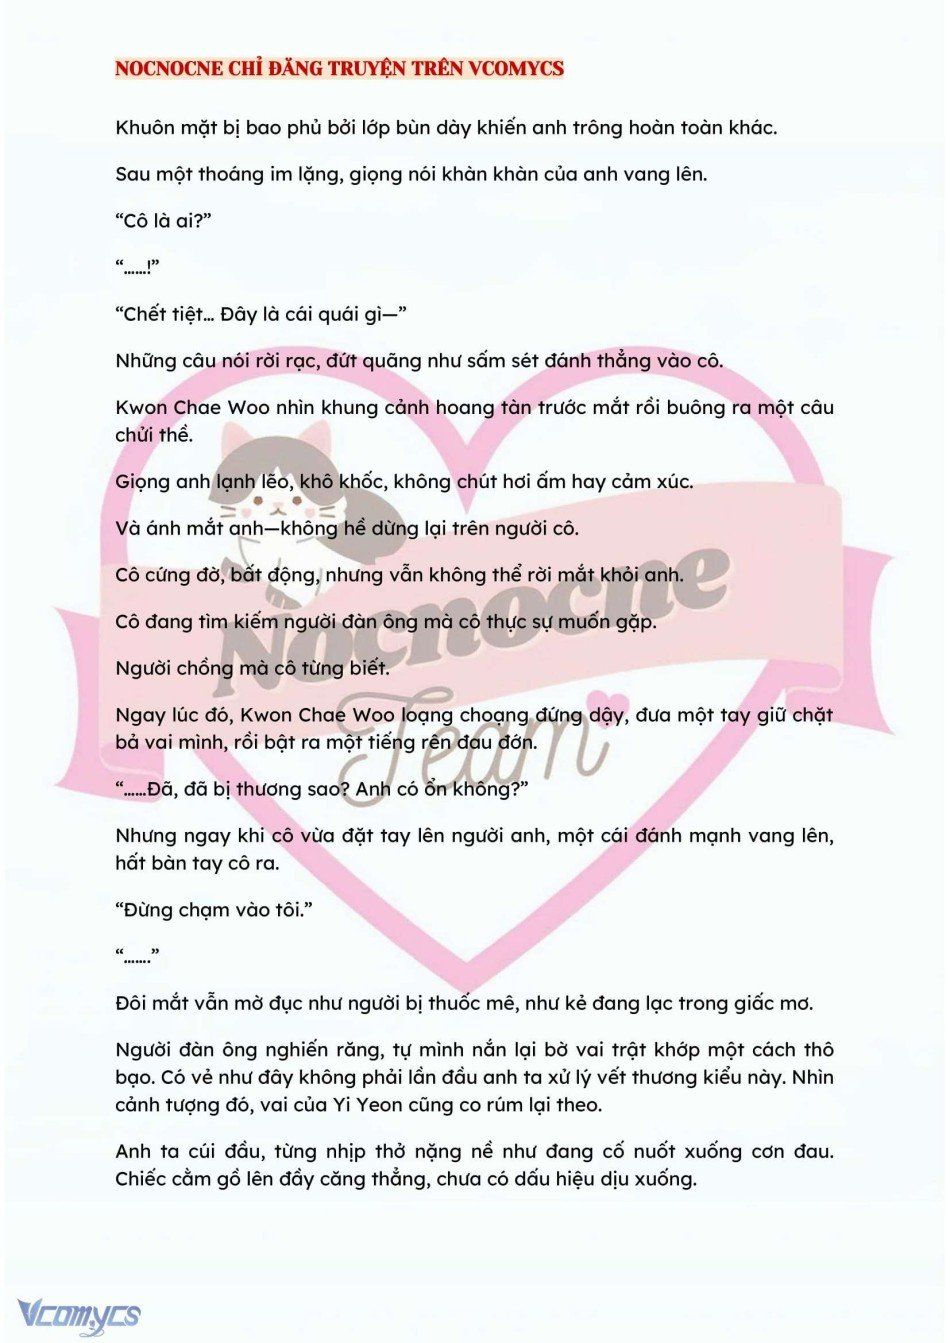 NOCNOCNE CHỈ ĐĂNG TRUYỆN TRÊN VCOMYCS
Khuôn mặt bị bao phủ bởi lớp bùn dày khiến anh trông hoàn toàn khác.
Sau một thoáng im lặng, giọng nói khàn khàn của anh vang lên.
“Cô là ai?”
“……!”
“Chết tiệt… Đây là cái quái gì—”
Những câu nói rời rạc, đứt quãng như sấm sét đánh thẳng vào cô.
Kwon Chae Woo nhìn khung cảnh hoang tàn trước mắt rồi buông ra một câu
chửi thề.
Giọng anh lạnh lẽo, khô khốc, không chút hơi ấm hay cảm xúc.
Và ánh mắt anh—không hề dừng lại trên người cô.
Cô cứng đờ, bất động, nhưng vẫn không thể rời mắt khỏi anh.
Cô đang tìm kiếm người đàn ông mà cô thực sự muốn gặp.
Nocnocne
Người chồng mà cô từng biết.
Team
Ngay lúc đó, Kwon Chae Woo loạng choạng đứng dậy, đưa một tay giữ chặt
bả vai mình, rồi bật ra một tiếng rên đau đớn.
“……Đã, đã bị thương sao? Anh có ổn không?”
Nhưng ngay khi cô vừa đặt tay lên người anh, một cái đánh mạnh vang lên,
hất bàn tay cô ra.
“Đừng chạm vào tôi.”
“…….”
Đôi mắt vẫn mờ đục như người bị thuốc mê, như kẻ đang lạc trong giấc mơ.
Người đàn ông nghiến răng, tự mình nắn lại bờ vai trật khớp một cách thô
bạo. Có vẻ như đây không phải lần đầu anh ta xử lý vết thương kiểu này. Nhìn
cảnh tượng đó, vai của Yi Yeon cũng co rúm lại theo.
Anh ta cúi đầu, từng nhịp thở nặng nề như đang cố nuốt xuống cơn đau.
Chiếc cằm gồ lên đầy căng thẳng, chưa có dấu hiệu dịu xuống.
Vcomycs